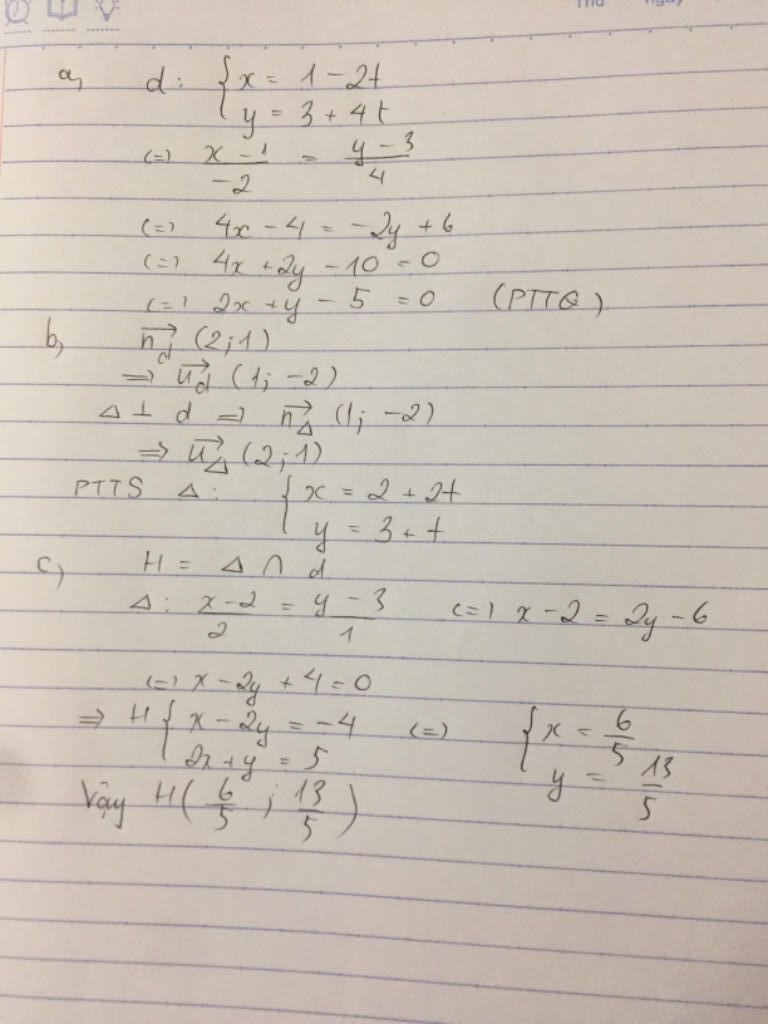 Thứ ngày
a, d: { x = 1 - 2t
y = 3 + 4t
(=) (x - 1)/(-2) = (y - 3)/4
(=) 4x - 4 = -2y + 6
(=) 4x + 2y - 10 = 0
(=) 2x + y - 5 = 0 (PTTQ)
b, n⃗d (2; 1)
=> u⃗d (1; -2)
Δ ⊥ d => n⃗Δ (1; -2)
=> u⃗Δ (2; 1)
PTTS Δ: { x = 2 + 2t
y = 3 + t
c, H = Δ ∩ d
Δ: (x - 2)/2 = (y - 3)/1 (=) x - 2 = 2y - 6
(=) x - 2y + 4 = 0
=> H { x - 2y = -4 (=) { x = 6/5
2x + y = 5 y = 13/5
Vậy H(6/5 ; 13/5)